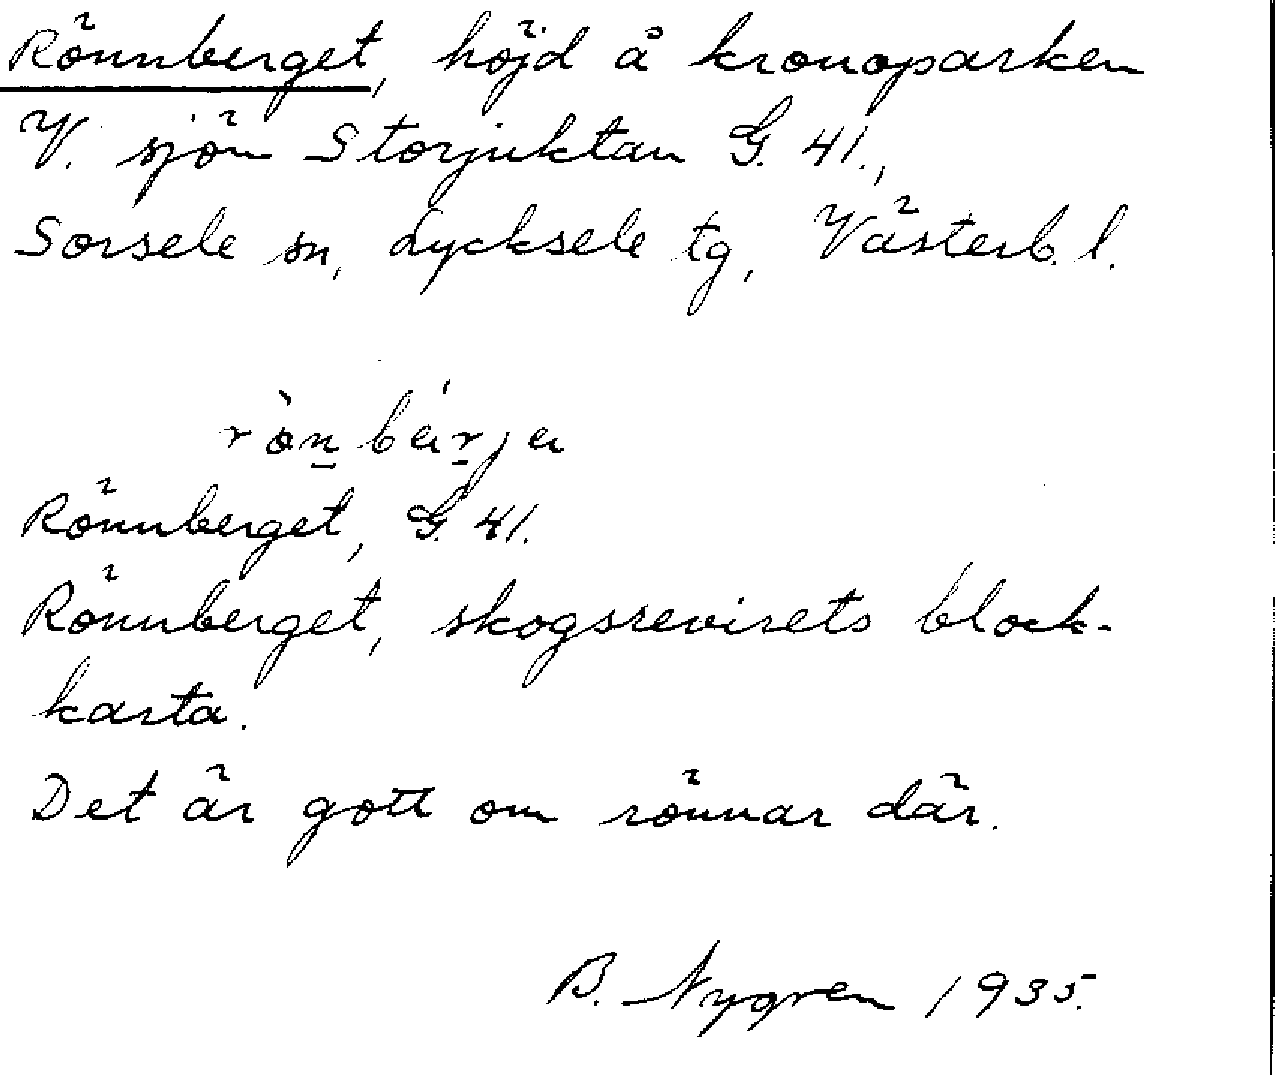 Rönnberget, höjd å kronoparken
V. sjön Storjuktan G. 41.,
Sorsele sn, Lycksele tg, Västerb. l.
rò̀n bárja
Rönnberget, G. 41.
Rönnberget, skogsrevirets block-
karta.
Det är gott om rönnar där.
B. Nygren 1935.